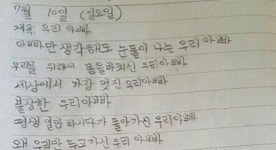 7월 10일 (일요일)
제목: 우리 아빠
아빠만 생각해도 눈물이 나는 우리 아빠
우리를 위해서 몸을바치신 우리아빠
세상에서 가장 멋진 우리아빠
불쌍한 우리아빠
평생 일만 하시다가 돌아가신 우리아빠
왜 우리만 두고가신 우리 아빠